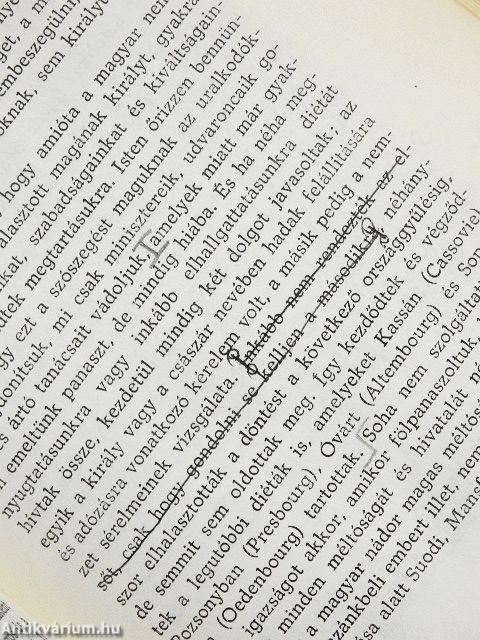 get, a m
embeszegülnü
oknak, sem királyo
hogy amióta a magyar nem
alasztott magának királyt, gyakra
kat, szabadságainkat és kiváltságain-
tek megtartásukra. Isten őrizzen bennün-
gy ezt a szószegést maguknak az uralkodók-
onítsuk, mi csak minisztereik, udvaroncaik go-
s ártó tanácsait vádoljuk, melyek miatt már gyak-
n emeltünk panaszt, de mindig hiába. És ha néha meg-
nyugtatásunkra vagy inkább elhallgattatásunkra diétát
hívtak össze, kezdetül mindig két dolgot javasoltak; az
egyik a király vagy a császár nevében hadak felállítására
és adózásra vonatkozó kérelem volt, a másik pedig a nem-
zet sérelmeinek vizsgálata. Inkább nem rendezték az el-
sőt, csak hogy gondolni se kelljen a másodikra, néhány-
szor elhalasztották a döntést a következő országgyűlésig,
de semmit sem oldottak meg. Így kezdődtek és végződ-
tek a legutóbbi diéták is, amelyeket Kassán (Cassovie
Pozsonyban (Presbourg), Óvárt (Altembourg) és Sop
n (Oedenbourg) tartottak. Soha nem szolgáltat
igazságot akkor, amikor fölpanaszoltuk, h
minden méltóságát és hivatalát né
a magyar nádor magas méltósá
zánkbeli embert illet, nem
sa alatt Suodi, Mansf
Antikvárium.hu